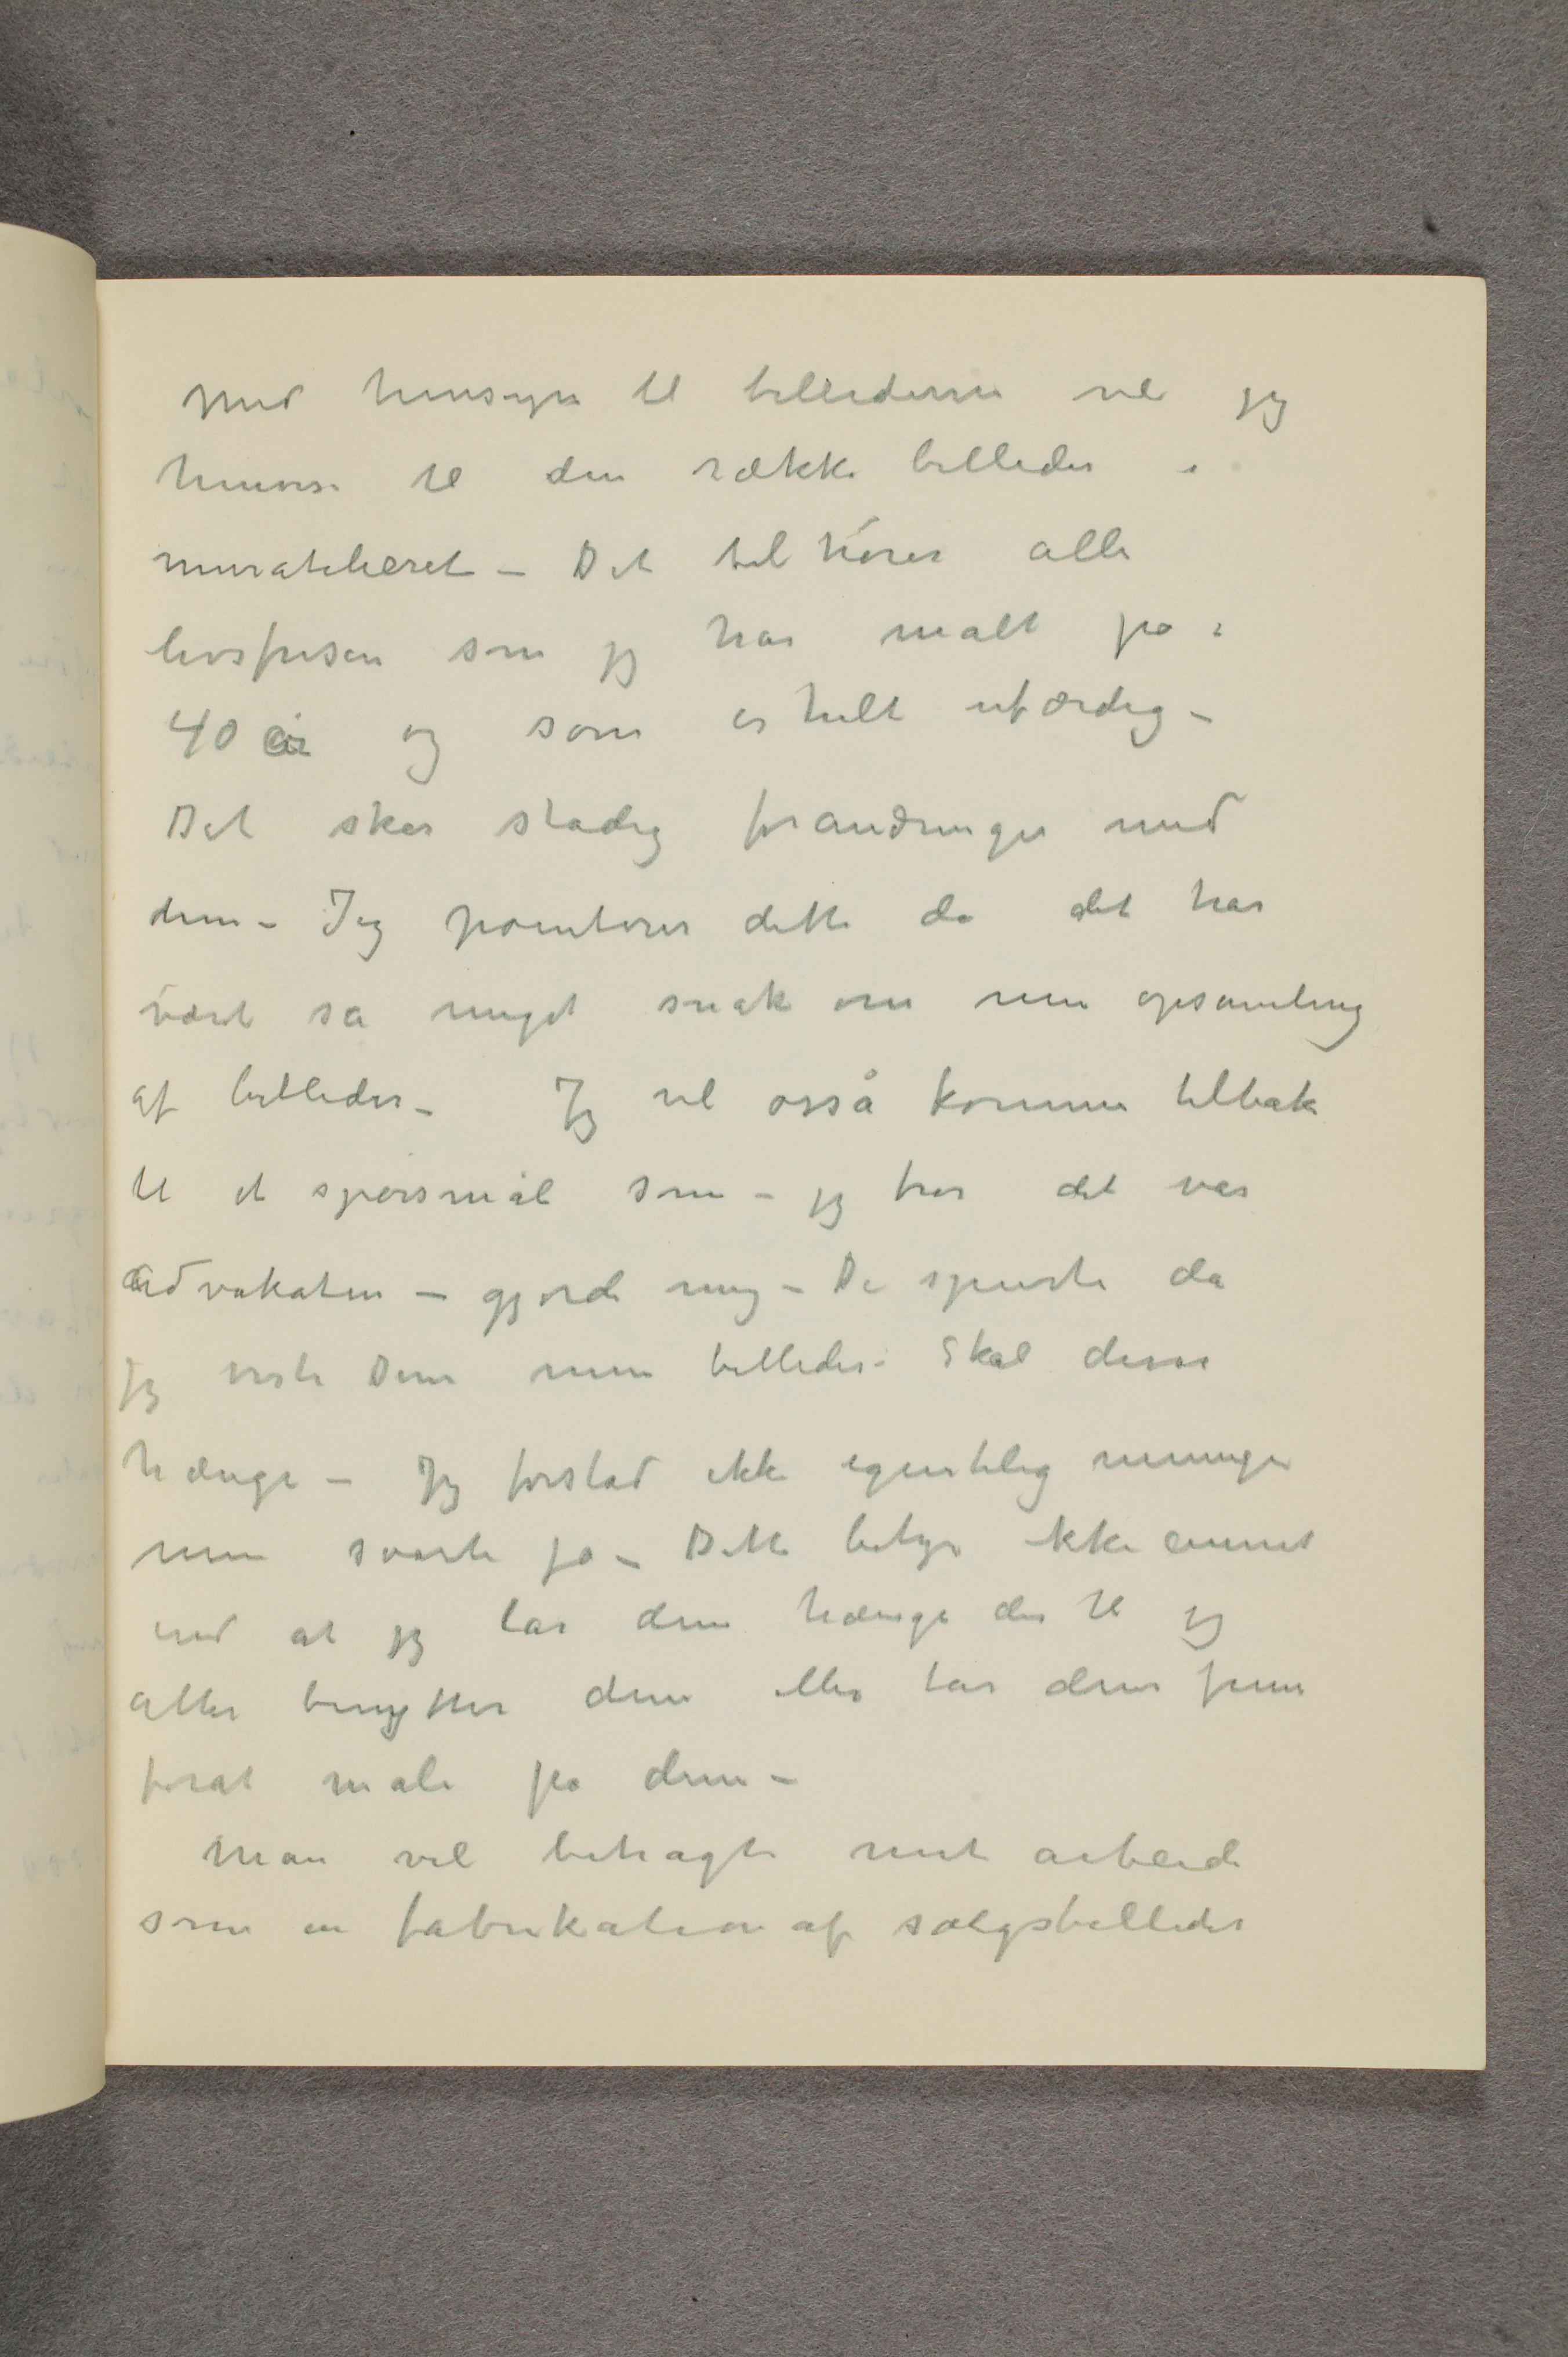 Med hensyn til billederne vil jeg
henvise til den række billeder i
muratelieret – Det tilhører alle
livsfrisen som jeg har malt på i
40 år og som er helt ufærdig –
Det sker stadig forandringer med
dem – Jeg pointerer dette da det har
været så meget snak om min opsamling
af billeder – Jeg vil osså komme tilbake
til et spørsmål som – jeg tror det var
advokaten – gjorde mig – De spurte da
jeg viste Dem mine billeder. Skal disse
hænge – Jeg forstod ikke egentlig meningen
men svarte ja – Dette betyr ikke annet
end at jeg lar dem hænge der til jeg
atter benytter dem eller tar dem frem
forat male på dem –
Man vil betragte mit arbeide
som en fabrikation af salgsbilleder